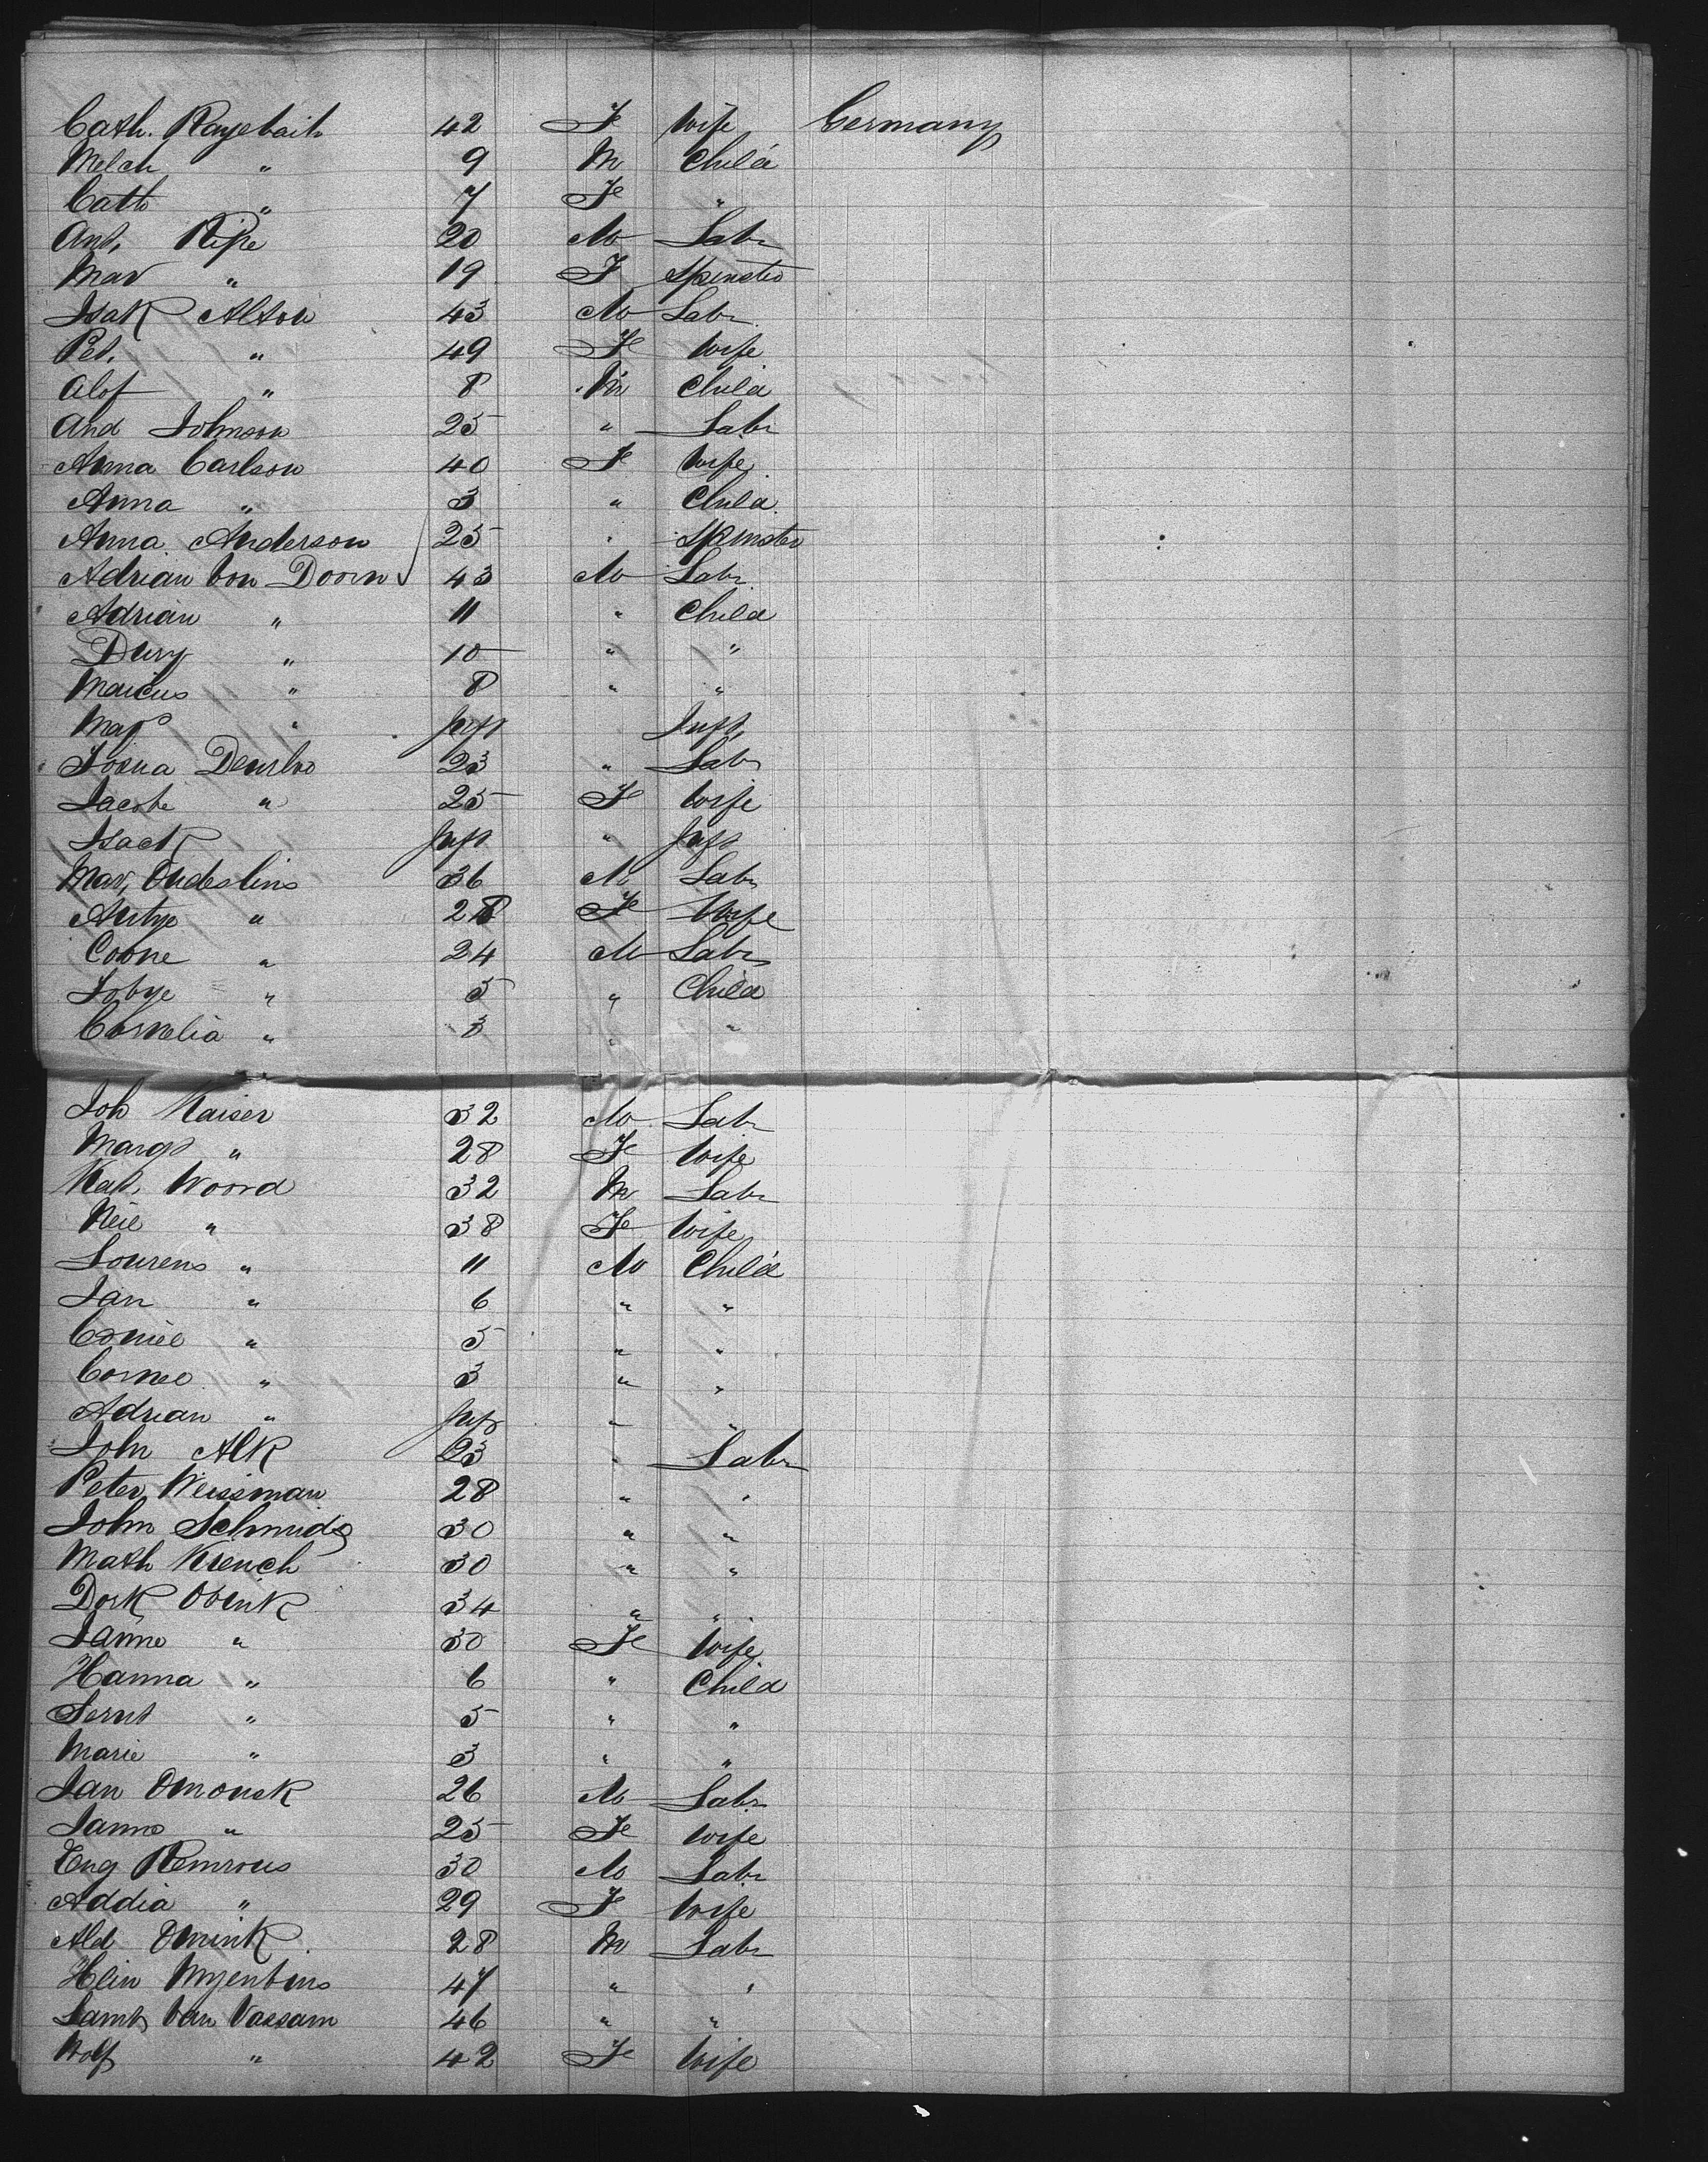 Cath. Rayebait 42 F Wife Germany
Melch " 9 M Child
Cath " 7 F "
Ant. Ripe 20 M Labr
Mar " 19 F Spinster
Isak Alton 43 M Labr
Pet. " 49 F Wife
Alof " 8 M Child
And Johnson 25 " Labr
Anna Carlson 40 F Wife
Anna " 3 " Child
Anna Anderson 25 " Spinster
Adrian Von Doorn 43 M Labr
Adrian " 11 " Child
Dury " 10 " "
Marcus " 8 " "
" Inft " Inft
23 " Labr
Jacobe " 25 F Wife
Isack Inft " Inft
Mar, Oudeslins 36 M Labr
Antye " 28 F Wife
Coone " 24 M Labr
Jobye " 5 " Child
Cornelia " 3 " "
Joh Kaiser 32 M Labr
Margt " 28 F Wife
Kat. Woord 32 M Labr
Neil " 38 F Wife
Lourens " 11 M Child
Jan " 6 " "
" 5 " "
Cornel " 3 " "
Adrian " Inft " "
John Alk 23 " Labr
Peter Weissman 28 " "
John Schmidt 30 " "
Math Krench 30 " "
Dork Obink 34 " "
Janne " 30 F Wife
Hanna " 6 " Child
" 5 " "
Marie " 3 " "
Jan Omonsk 26 M Labr
Janne " 25 F Wife
Eng Remrous 30 M Labr
Addia " 29 F Wife
Ald Omink 28 M Labr
Hein 47 " "
Lamb Van Vassam 46 " "
" 42 F Wife